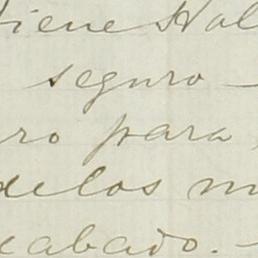 tiene Hal
seguro -
ro para
delos m
cabado. -